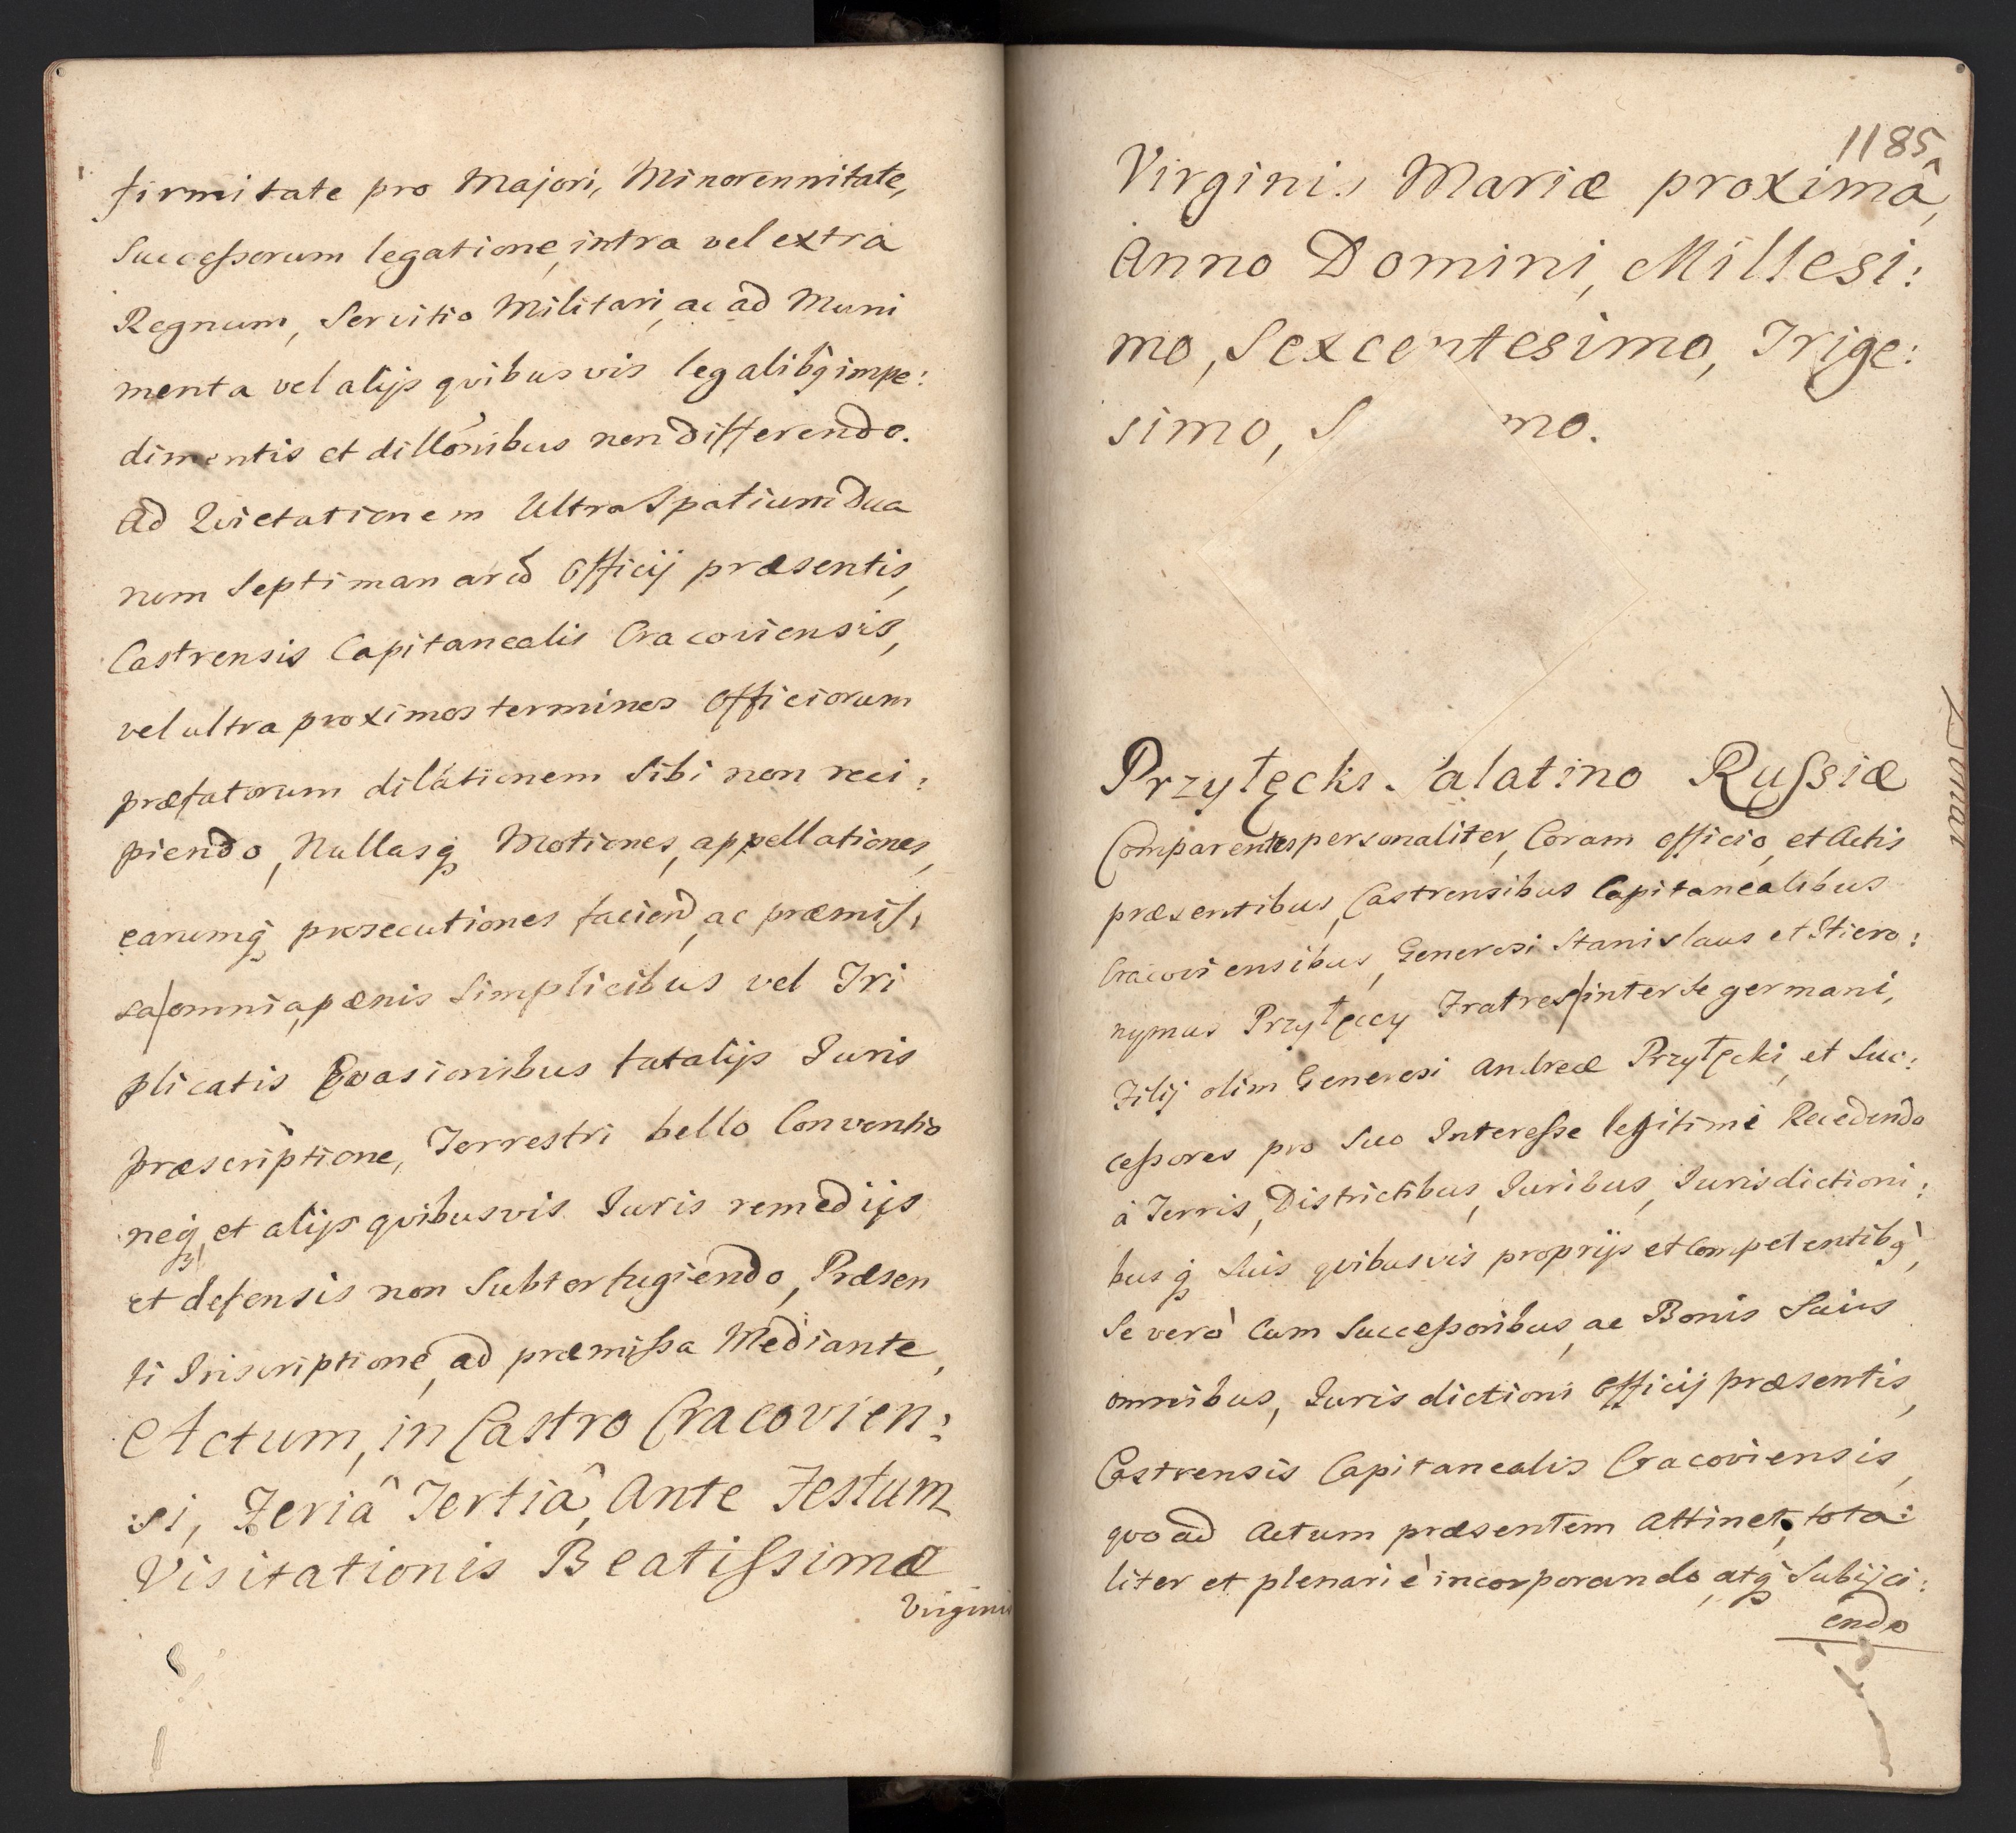 firmitate pro Majori, Minorennitate,
Succeſsorum legatione, intra vel extra
Regnum, Servitio Militari, ac ad Muni
menta vel alijs qvibusvis legalibq impe:
dimentis et dillonibus non differendo.
Ad Qvietationem Ultra Spatium Dua
rum Septimanarū Officij præsentis,
Castrensis Capitanealis Cracoviensis,
vel ultra proximos terminos Officiorum
præfatorum dilationem Sibi non reci:
piendo, Nullasq Motiones, appellationes,
earumq prosecutiones faciend, ac præmiſ,
sa/omnia, pænis Simplicibus vel Tri
plicatis Evasionibus tutalijs Juris
præscriptione, Terrestri bello Conventio
neq, et alijs qvibusvis Juris remedijs
et defensis non Subterfugiendo, Præsen
ti Inscriptione, ad præmiſsa Mediante,
Actum, in Castro Cracovien:
si, Feriâ Tertiâ, Ante Festum
Visitationis Beatiſsimæ
Virginis
1185
Virginis, Mariæ proximâ,
Anno Domini, Millesi:
mo, Sexcentesimo, Trige:
simo, S mo.
Przyłęcki alatino Ruſsiæ
Donat
Comparentes personaliter, Coram Officio, et Actis
præsentibus, Castrensibus Capitanealibus
Cracoviensibus, Generosi Stanislaus et Hiero:
nymus Przyłęccy Fratres/inter Se germani,
Filij olim Generosi Andreæ Przyłęcki, et Suc:
ceſsores pro Suo Intereſse legitimè Recedendo
à Terris, Districtibus, Juribus, Jurisdictioni:
busq Suis qvibusvis proprijs et Competentibq,
Se verò Cum Succeſsoribus, ac Bonis Suius
omnibus, Jurisdictioni Officij præsentis,
Castrensis Capitanealis Cracoviensis,
qvo ad Actum præsentem attinet, tota:
liter et plenariè incorporando, atq Subijci:
endo